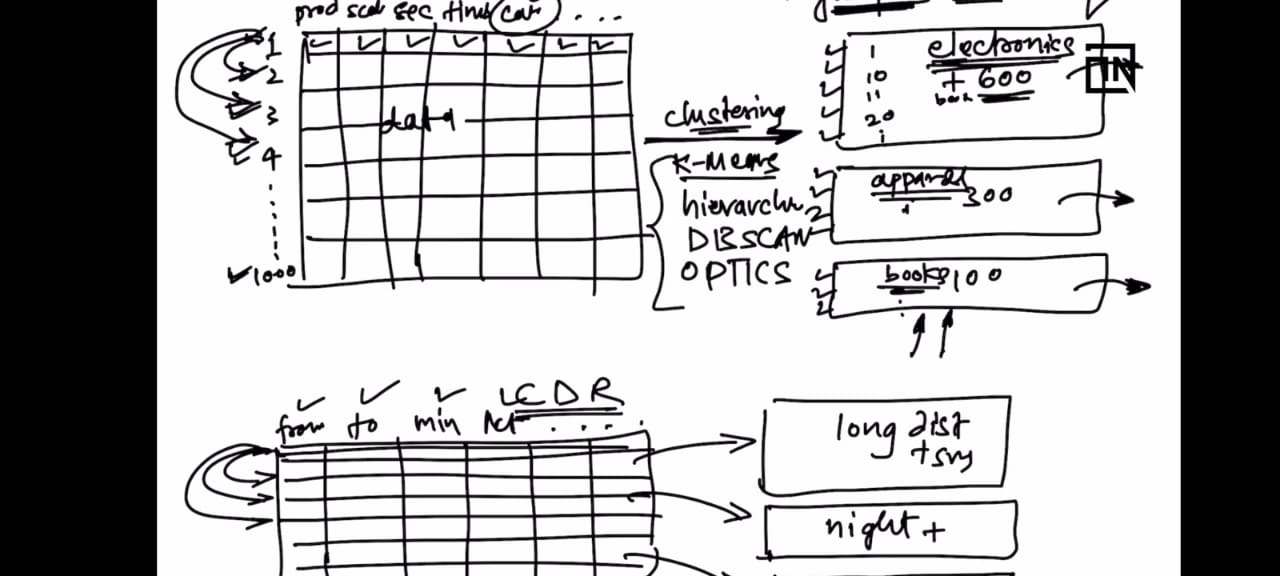 prod sec time cat ...
1
2
3
4
1000
data
clustering
K-Means
hierarchi
DBSCAN
OPTICS
1
10
11
20
electronics
+ 600
book
IN
apparel 300
books 100
CDR
from to min Act ....
long dist
+ srv
night +